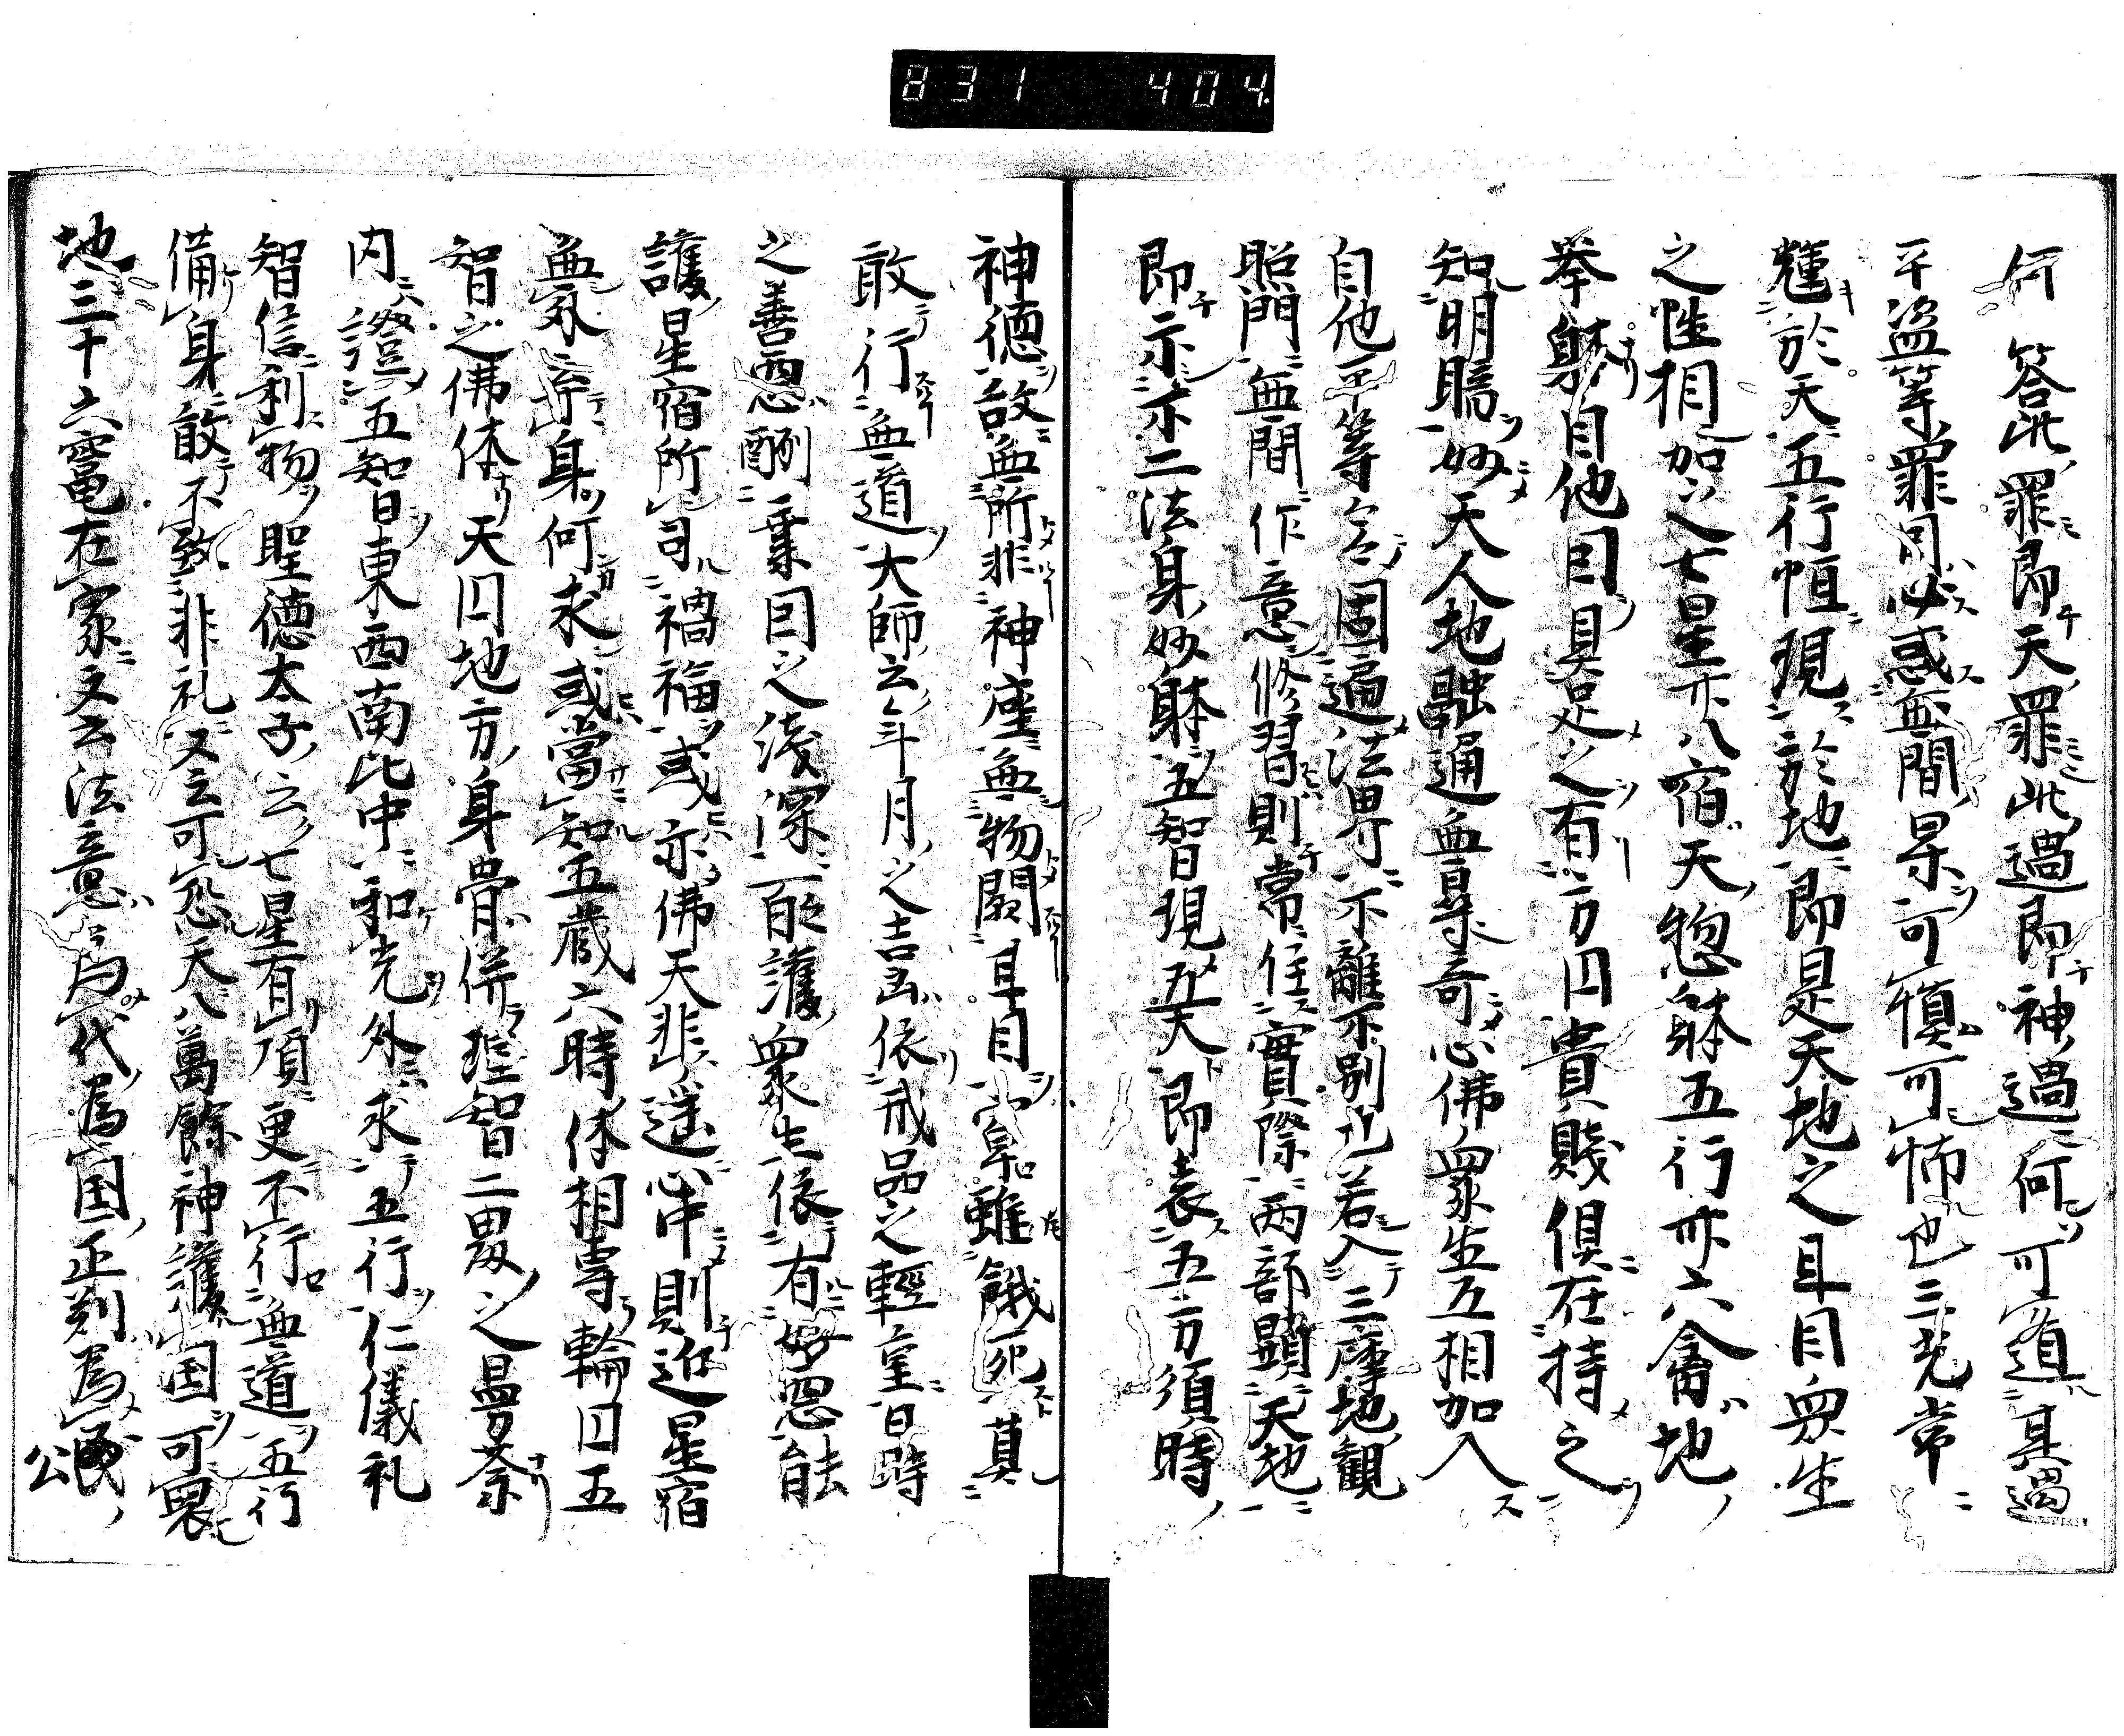 831 404
何 答此罪即天罪此過即神過何可道其過
平盗等罪同必惑無間果可慎可怖也三光常
耀於天五行恒現於地即是天地之耳目衆生
之性相加之七星亦八宿天惣躰五行亦六禽地
挙躰自他因具足之有方円貴賤倶在持之
知明瞻妙天人地融通無尋奇心佛衆生互相加入
自他平等合固遍法界不離不別也若入三摩地観
照門無間作意修習則常住實際両部顕天地
即示亦二法身妙躰五智現五大即表五方須時
神徳故無所非神座無物闕耳目寧雖餓死莫
敢行無道大師云年月之吉凶依戒品之軽重日時
之善悪酬業因之浅深一百能護衆生依有好悪能
護星宿所司禍福或亦佛天非遥心中則近星宿
無外弃身何求或當知五蔵六時休相専輪円五
智之佛体天円地方身骨併理智二界之曼荼
内證五智東西南北中和光外求五行仁儀礼
智信利物聖徳太子云七星有項更不行無道五行
備身敢不致非礼又云可恐天八萬餘神護国可畏
地三十六竃在家文云法意与代為国正判為民公